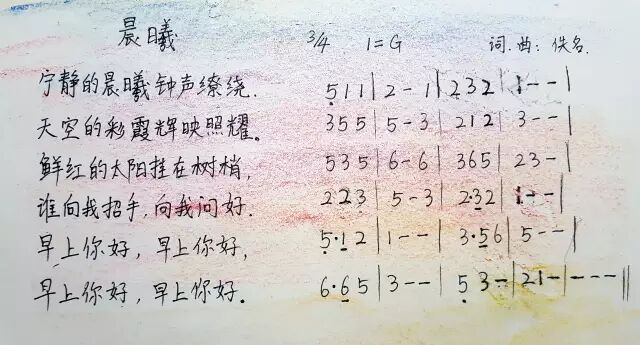 晨曦 3/4 1=G 词.曲：佚名.
宁静的晨曦钟声缭绕. 5̣11|2-1|232|1--|
天空的彩霞辉映照耀。 355|5-3|212|3--|
鲜红的太阳挂在树梢, 535|6-6|365|23-|
谁向我招手,向我问好. 223|5-3|2·32|1--|
早上你好，早上你好, 5·12|1--|3·56|5--|
早上你好，早上你好. 6·65|3--|53-|21-|---||